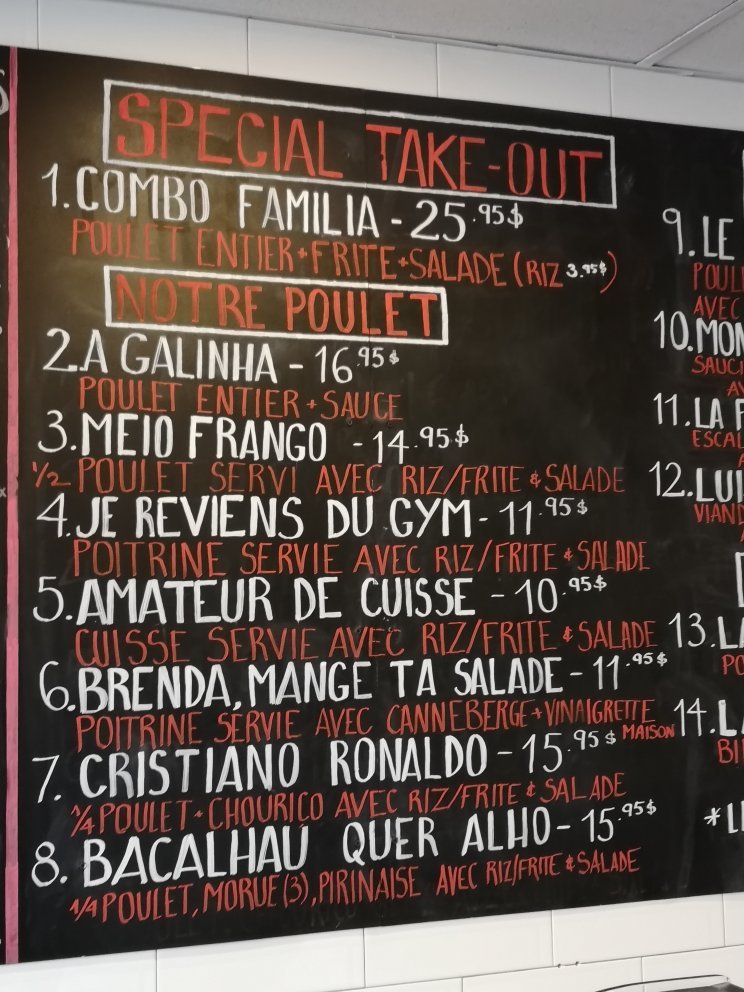 SPECIAL TAKE-OUT
1. COMBO FAMILIA - 25.95$
POULET ENTIER + FRITE + SALADE (RIZ 3.95$)
NOTRE POULET
2. A GALINHA - 16.95$
POULET ENTIER + SAUCE
3. MEIO FRANGO - 14.95$
1/2 POULET SERVI AVEC RIZ/FRITE & SALADE
4. JE REVIENS DU GYM - 11.95$
POITRINE SERVIE AVEC RIZ/FRITE & SALADE
5. AMATEUR DE CUISSE - 10.95$
CUISSE SERVIE AVEC RIZ/FRITE & SALADE
6. BRENDA, MANGE TA SALADE - 11.95$
POITRINE SERVIE AVEC CANNEBERGE + VINAIGRETTE MAISON
7. CRISTIANO RONALDO - 15.95$
1/4 POULET + CHOURICO AVEC RIZ/FRITE & SALADE
8. BACALHAU QUER ALHO - 15.95$
1/4 POULET, MORUE (3), PIRINAISE AVEC RIZ/FRITE & SALADE
9. LE
AVEC
10.
11. LA
12.
13.
14.